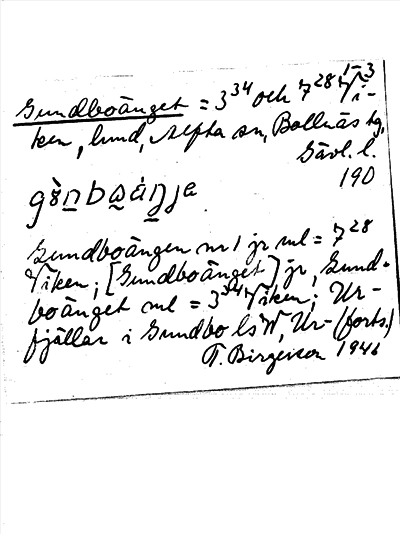 1-3
Gundboänget = 3³⁴ och 7²⁸ Vi-
ken, lund, Alfta sn, Bollnäs tg,
Gävl. l.
190
Gundboängen nr 1 jr ml = 7²⁸
Viken; [Gundboänget] jr, Gund-
boänget ml = 3³⁴ Viken; Ur-
fjällar i Gundbo ls W, Ur- (forts.)
T. Birgersson 1946